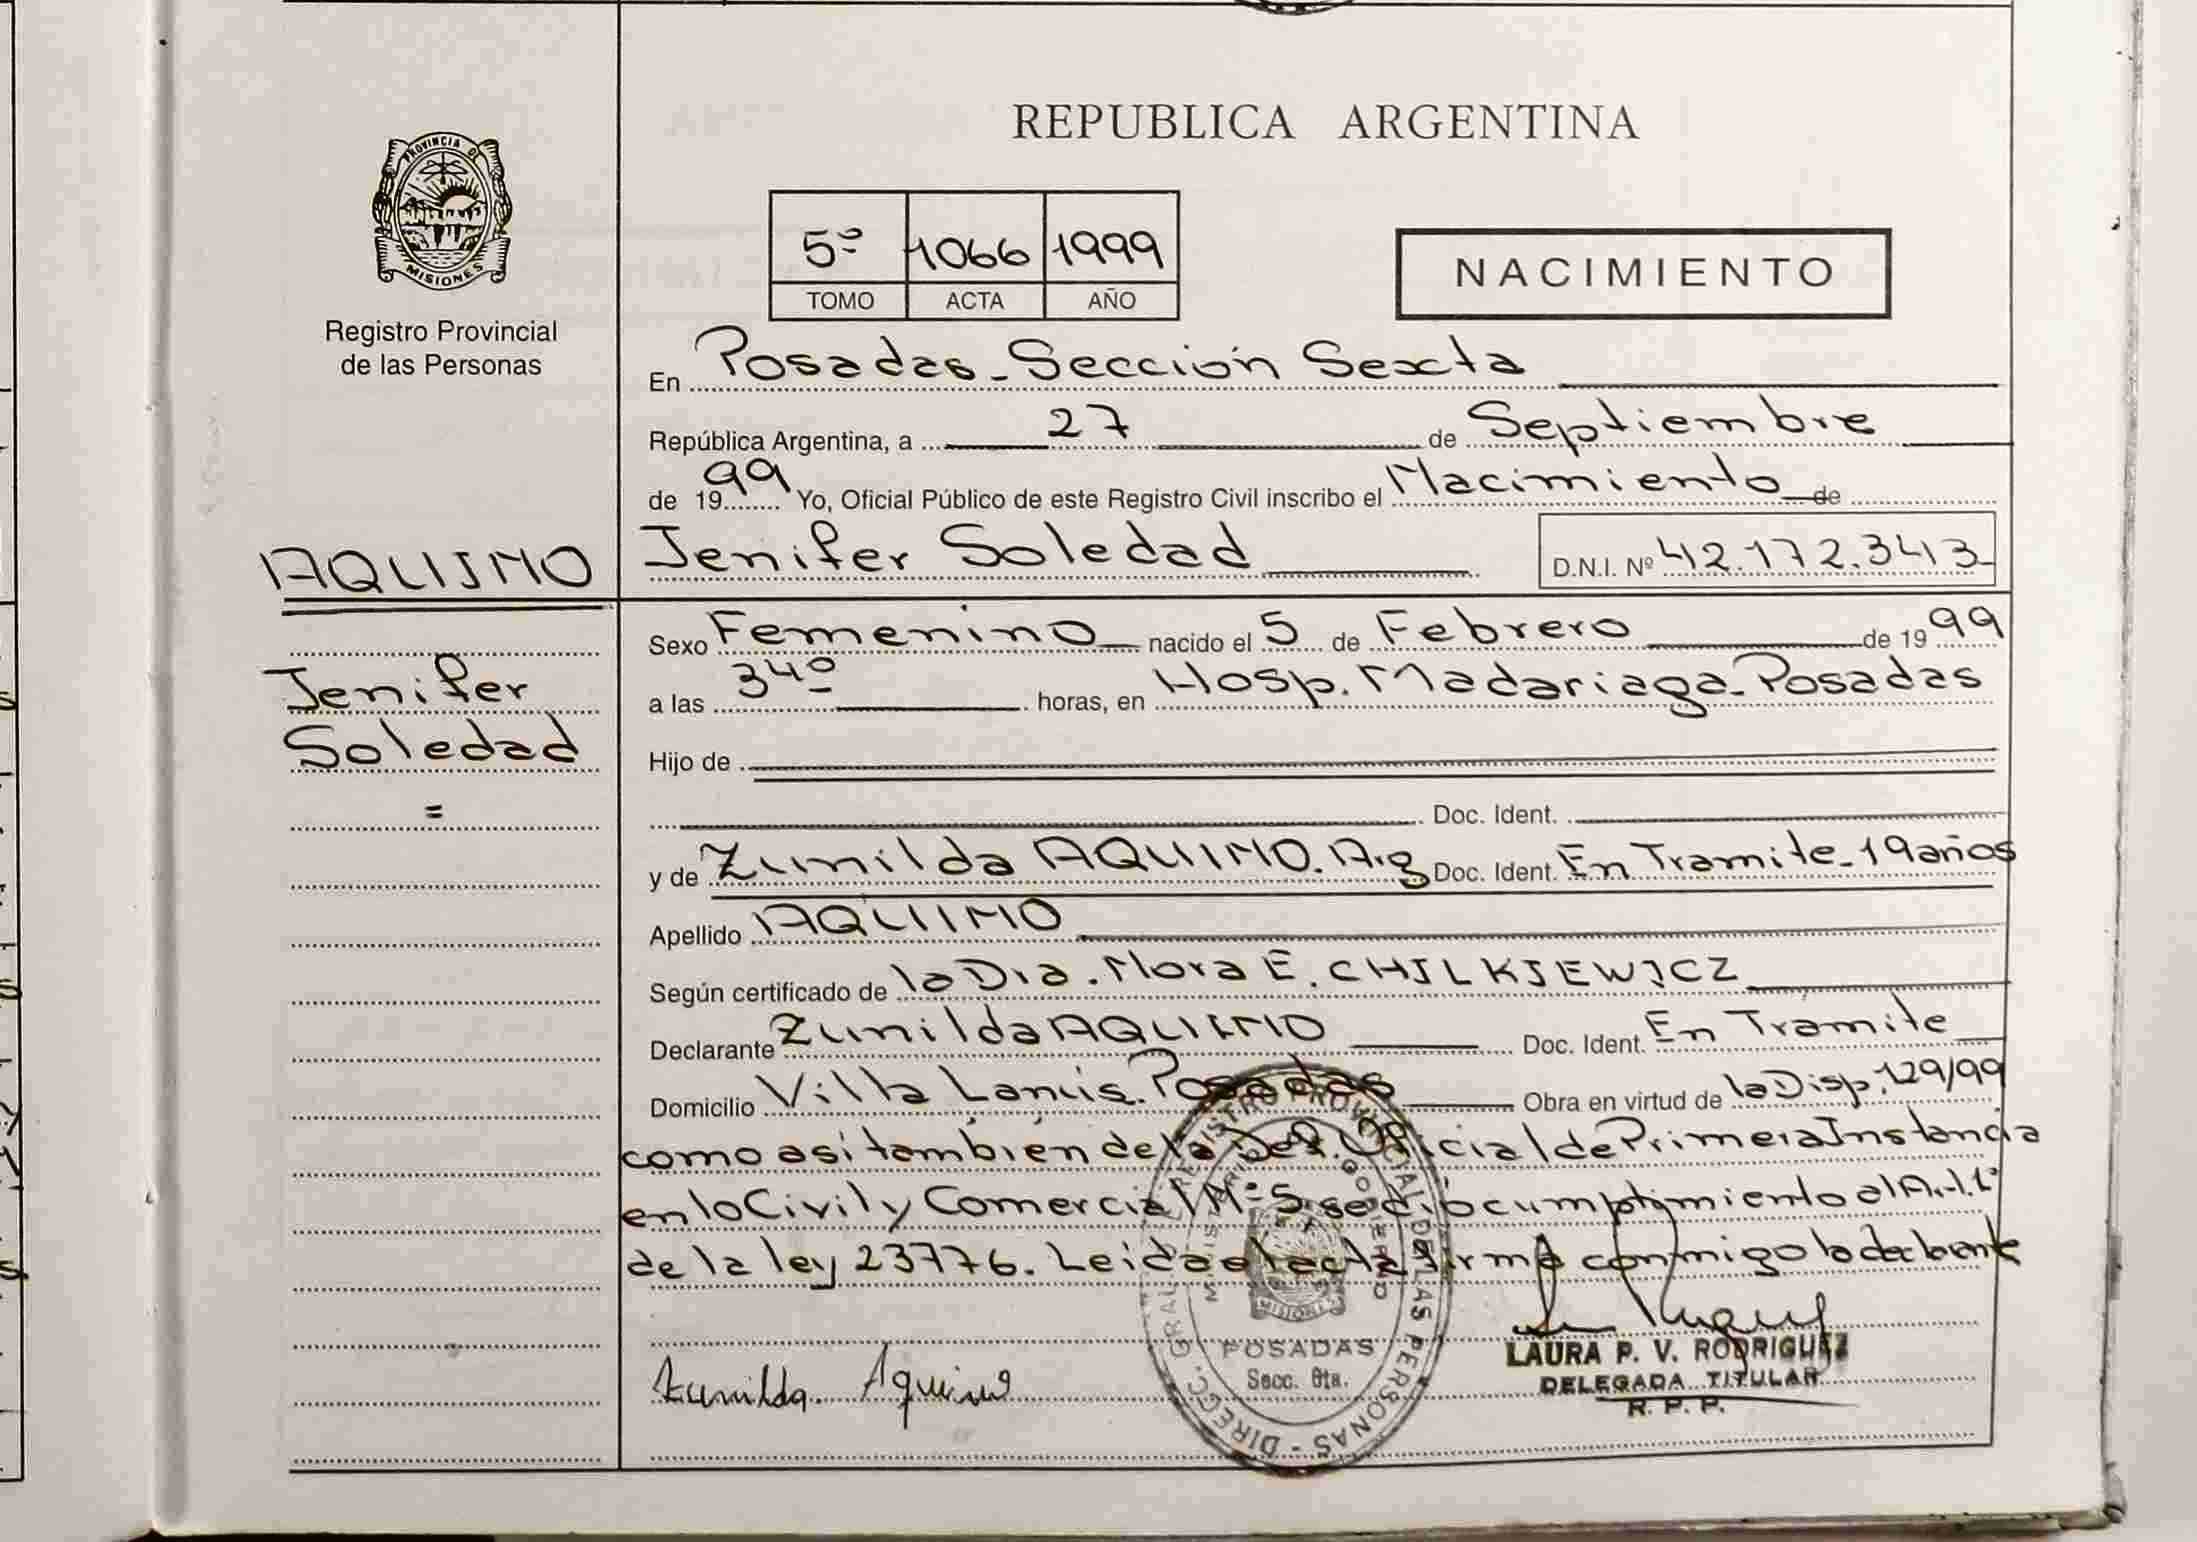 REPUBLICA ARGENTINA
PROVINCIA DE
MISIONES
Registro Provincial
de las Personas
5º 1066 1999
TOMO ACTA AÑO
NACIMIENTO
En Posadas - Sección Sexta
República Argentina, a 27 de Septiembre
de 1999 Yo, Oficial Público de este Registro Civil inscribo el Nacimiento de
AQUINO
Jenifer Soledad D.N.I. Nº 42.172.343
Jenifer
Soledad
=
Sexo Femenino nacido el 5 de Febrero de 1999
a las 34º horas, en Hosp. Madariaga - Posadas
Hijo de
Doc. Ident.
y de Zunilda AQUINO. Arg Doc. Ident. En Tramite - 19 años
Apellido AQUINO
Según certificado de la Dra. Nora E. CHILKIEWICZ
Declarante Zunilda AQUINO Doc. Ident. En Tramite
Domicilio Villa Lanús. Posadas Obra en virtud de la Disp. 129/99
como asi también de la Def. Oficial de Primera Instancia
en lo Civil y Comercial Nº 5. se dió cumplimiento al Art. 1º
de la ley 23776. Leida el acta firma conmigo la declarante
Zunilda Aquino
DIREC. GRAL. REGISTRO PROVINCIAL DE LAS PERSONAS
MISIONES
POSADAS
Secc. 6ta.
LAURA P. V. RODRIGUEZ
DELEGADA TITULAR
R. P. P.